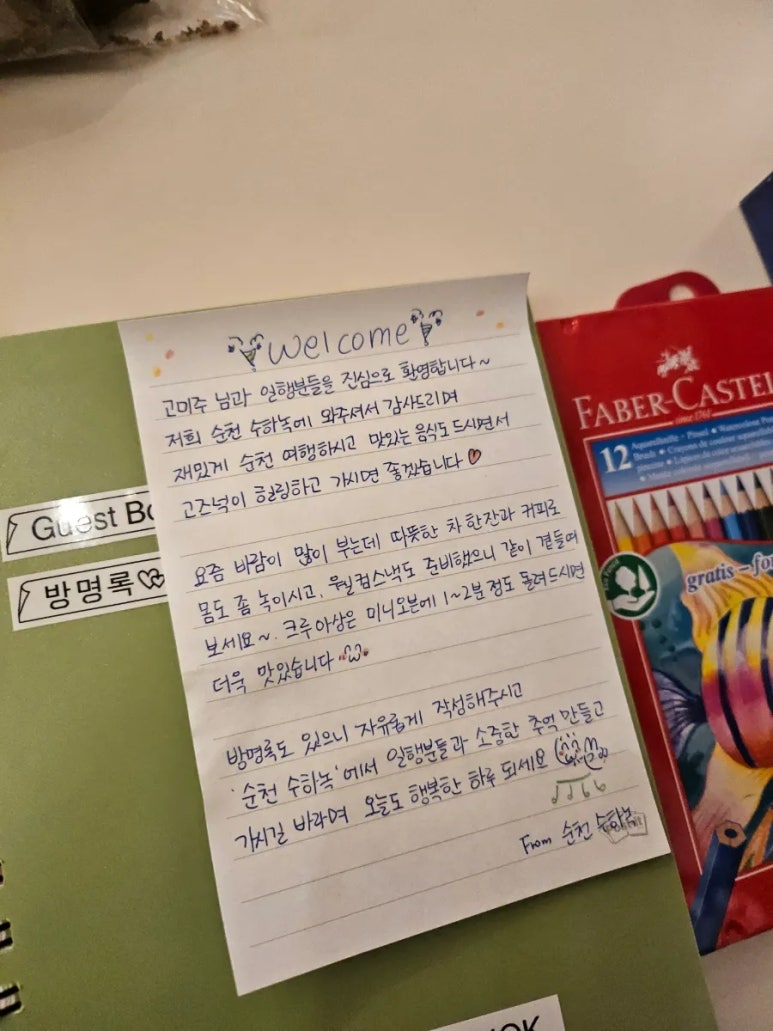 welcome
고미주 님과 일행분들을 진심으로 환영합니다~
저희 순천 수하녹에 와주셔서 감사드리며
재밌게 순천 여행하시고 맛있는 음식도 드시면서
고즈넉이 힐링하고 가시면 좋겠습니다
요즘 바람이 많이 부는데 따뜻한 차 한잔과 커피로
몸도 좀 녹이시고, 웰컴스낵도 준비했으니 같이 곁들여
보세요~. 크루아상은 미니오븐에 1~2분 정도 돌려드시면
더욱 맛있습니다
방명록도 있으니 자유롭게 작성해주시고
'순천 수하녹'에서 일행분들과 소중한 추억 만들고
가시길 바라며 오늘도 행복한 하루 되세요
From 순천 수하녹
Guest Bo
방명록
FABER-CASTEL
since 1761
12
gratis - for
OK